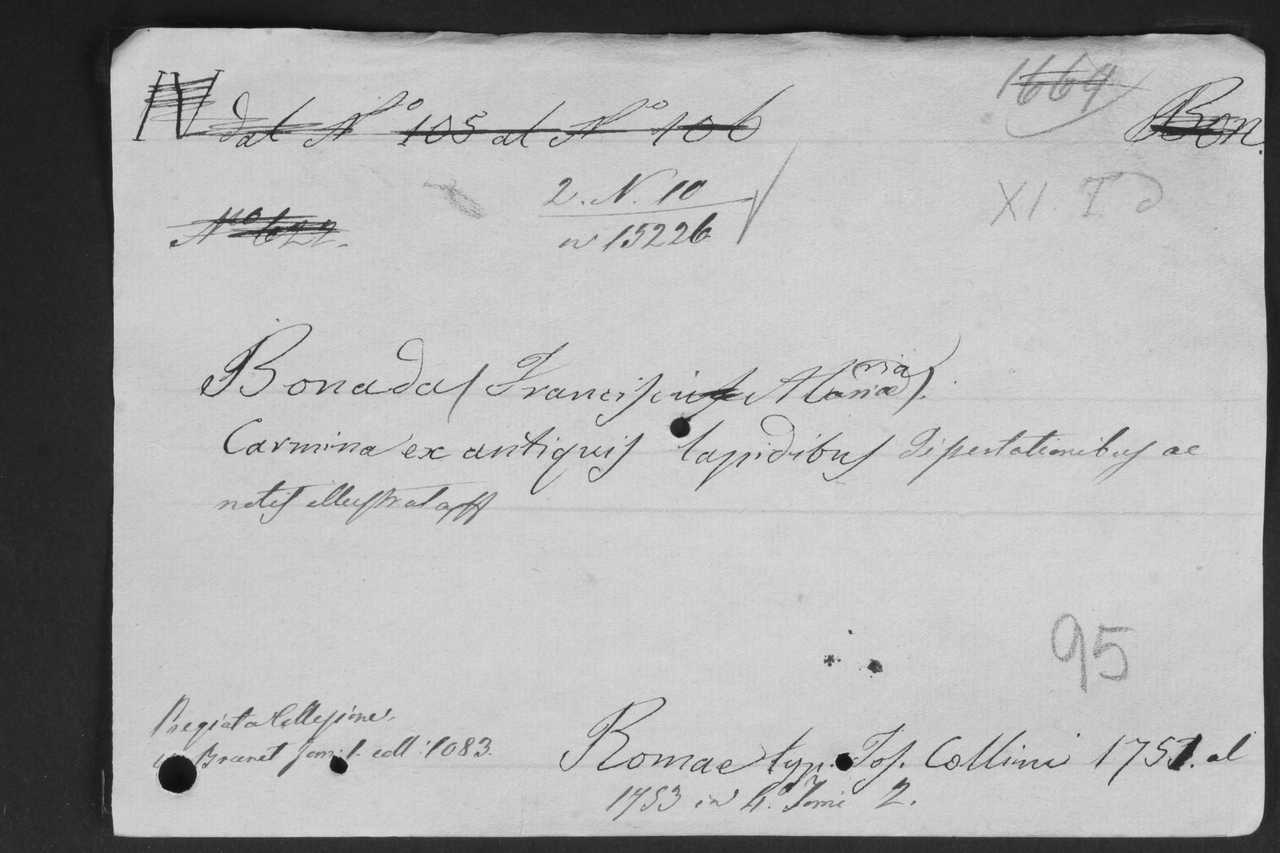 IV dal N° 105 al N° 106
1664
Bon.
2. N. 10
XI. I d
N° 622.
n 15226
Bonada (Franciscus Maria).
Carmina ex antiquis lapidibus Dissertationibus ac
notis illustrata
95
Pregiata Collezione.
Brunet Tom: 1. coll: 1083.
Romae typ. Jos. Collini 1751. al
1753 in 4° Tomi 2.